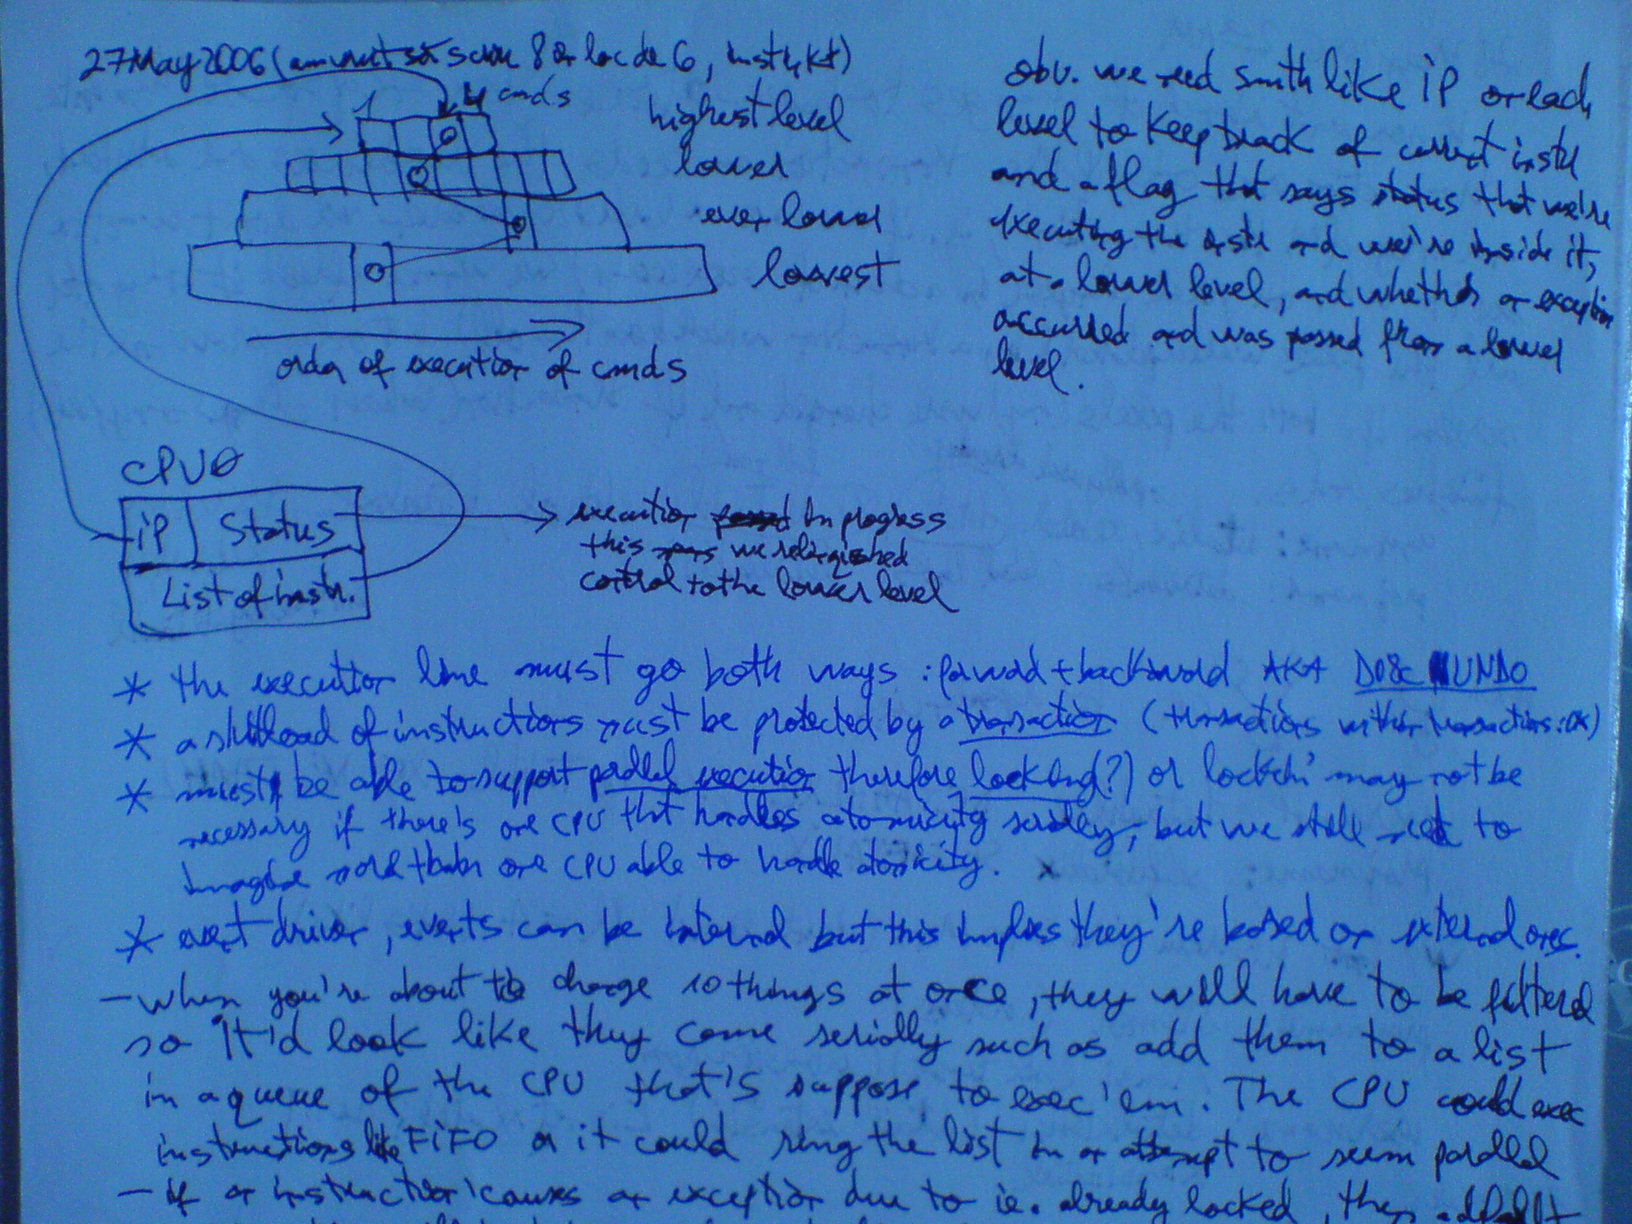 27May2006 (
1 4 cmds
highest level
lower
even lower
lowest
order of execution of cmds
obv. we need smth like iP on each
level to keep track of current instr
and a flag that says status that we're
executing the instr and we're inside it,
at a lower level, and whether an exception
occurred and was passed from a lower
level.
CPUØ
iP Status
List of instr.
execution passed in progress
this we relinquished
control to the lower level
* the execution line must go both ways : forward + backward AKA DO & UNDO
* a shitload of instructions must be protected by a transaction (transactions within transactions: OK)
* must be able to support parallel execution therefore locking(?) or lockin' may not be
necessary if there's one CPU that handles atomicity serially, but we still need to
imagine more than one CPU able to handle atomicity.
* event driven, events can be internal but this implies they're based on external ones.
- when you're about to change 10 things at once, they will have to be filtered
so it'd look like they came serially such as add them to a list
in a queue of the CPU that's suppose to exec 'em. The CPU could exec
instructions like FiFO or it could ring the list in an attempt to seem parallel
- if an instruction causes an exception due to ie. already locked, then